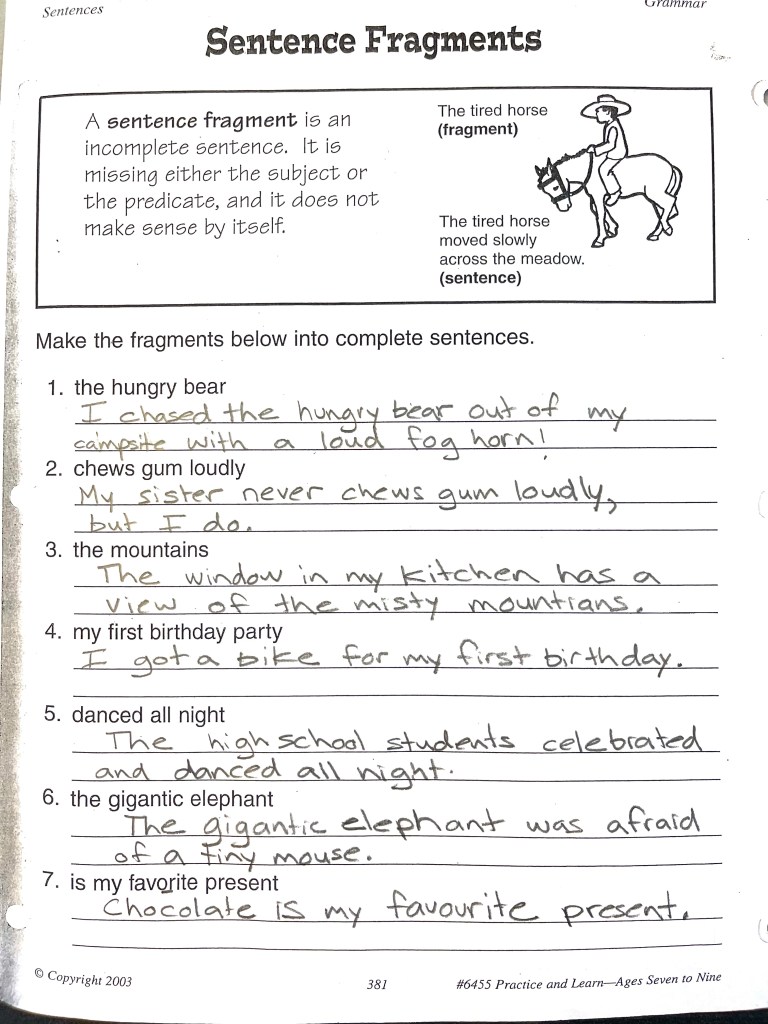 Sentences
Grammar
Sentence Fragments
A sentence fragment is an
incomplete sentence. It is
missing either the subject or
the predicate, and it does not
make sense by itself.
The tired horse
(fragment)
The tired horse
moved slowly
across the meadow.
(sentence)
Make the fragments below into complete sentences.
1. the hungry bear
I chased the hungry bear out of my
campsite with a loud fog horn!
2. chews gum loudly
My sister never chews gum loudly,
but I do.
3. the mountains
The window in my kitchen has a
view of the misty mountians.
4. my first birthday party
I got a bike for my first birthday.
5. danced all night
The high school students celebrated
and danced all night.
6. the gigantic elephant
The gigantic elephant was afraid
of a tiny mouse.
7. is my favorite present
Chocolate is my favourite present.
© Copyright 2003
381
#6455 Practice and Learn—Ages Seven to Nine